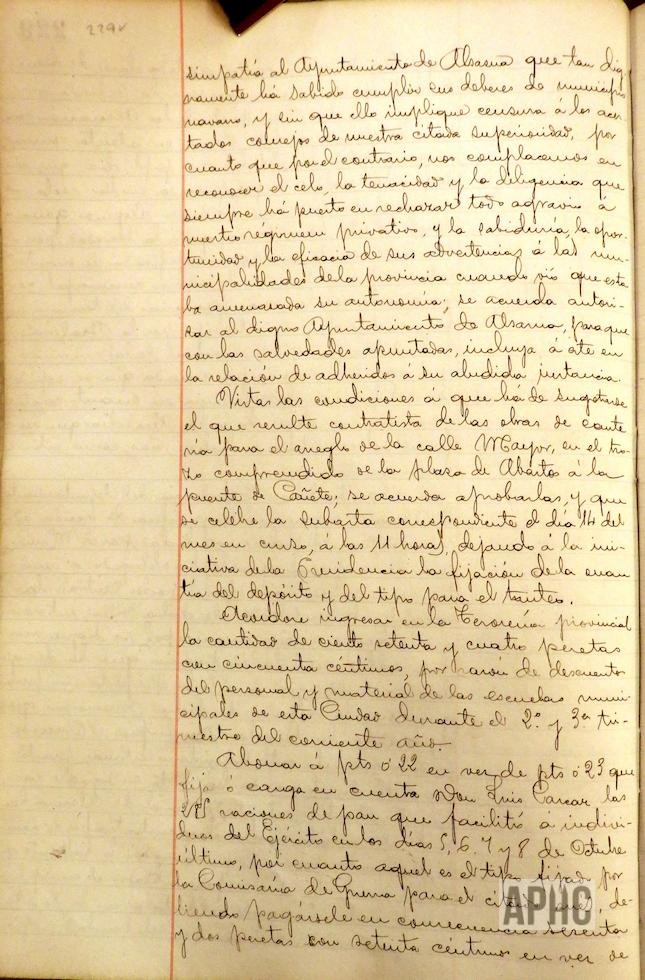 229v
simpatía al Ayuntamiento de Alsasua que tan dig-
namente há sabido cumplir sus deberes de municipio
navarro, y sin que ello implique censura á los acer-
tados consejos de nuestra citada superioridad, por
cuanto que por el contrario, nos complacemos en
reconocer el celo, la tenacidad y la diligencia que
siempre há puesto en rechazar todo agravio á
nuestro régimen privativo, y la sabiduría, la opor-
tunidad y la eficacia de sus advertencias á las mu-
nicipalidades de la provincia cuando vió que esta-
ba amenazada su autonomía; se acuerda autori-
zar al digno Ayuntamiento de Alsasua, para que
con las salvedades apuntadas, incluya á este en
la relación de adheridos á su aludida instancia.
Vistas las condiciones á que há de sugetarse
el que resulte contratista de las obras de cante-
ría para el arreglo de la calle Mayor, en el tro-
zo comprendido de la plaza de Abastos á la
puente de Cañete; se acuerda aprobarlas, y que
se celebre la subasta correspondiente el día 14 del
mes en curso, á las 11 horas, dejando á la ini-
ciativa de la Presidencia la fijación de la cuan-
tía del depósito y del tipo para el tranteo.
Acuérdase ingresar en la Tesorería provincial
la cantidad de ciento setenta y cuatro pesetas
con cincuenta céntimos, por razón de descuento
del personal y material de las escuelas muni-
cipales de esta Ciudad durante el 2º y 3er tri-
mestre del corriente año.
Abonar á pts 0'22 en vez de pts 0'23 que
fija ó carga en cuenta Don Luis Carcar, las
285 raciones de pan que facilitó á indivi-
duos del Ejército en los días 5, 6, 7 y 8 de Octubre
último, por cuanto aquel es el tipo fijado por
la Comisaría de Guerra para el citado mes, de-
biendo pagársele en consecuencia sesenta
y dos pesetas con setenta céntimos en vez de
APHC